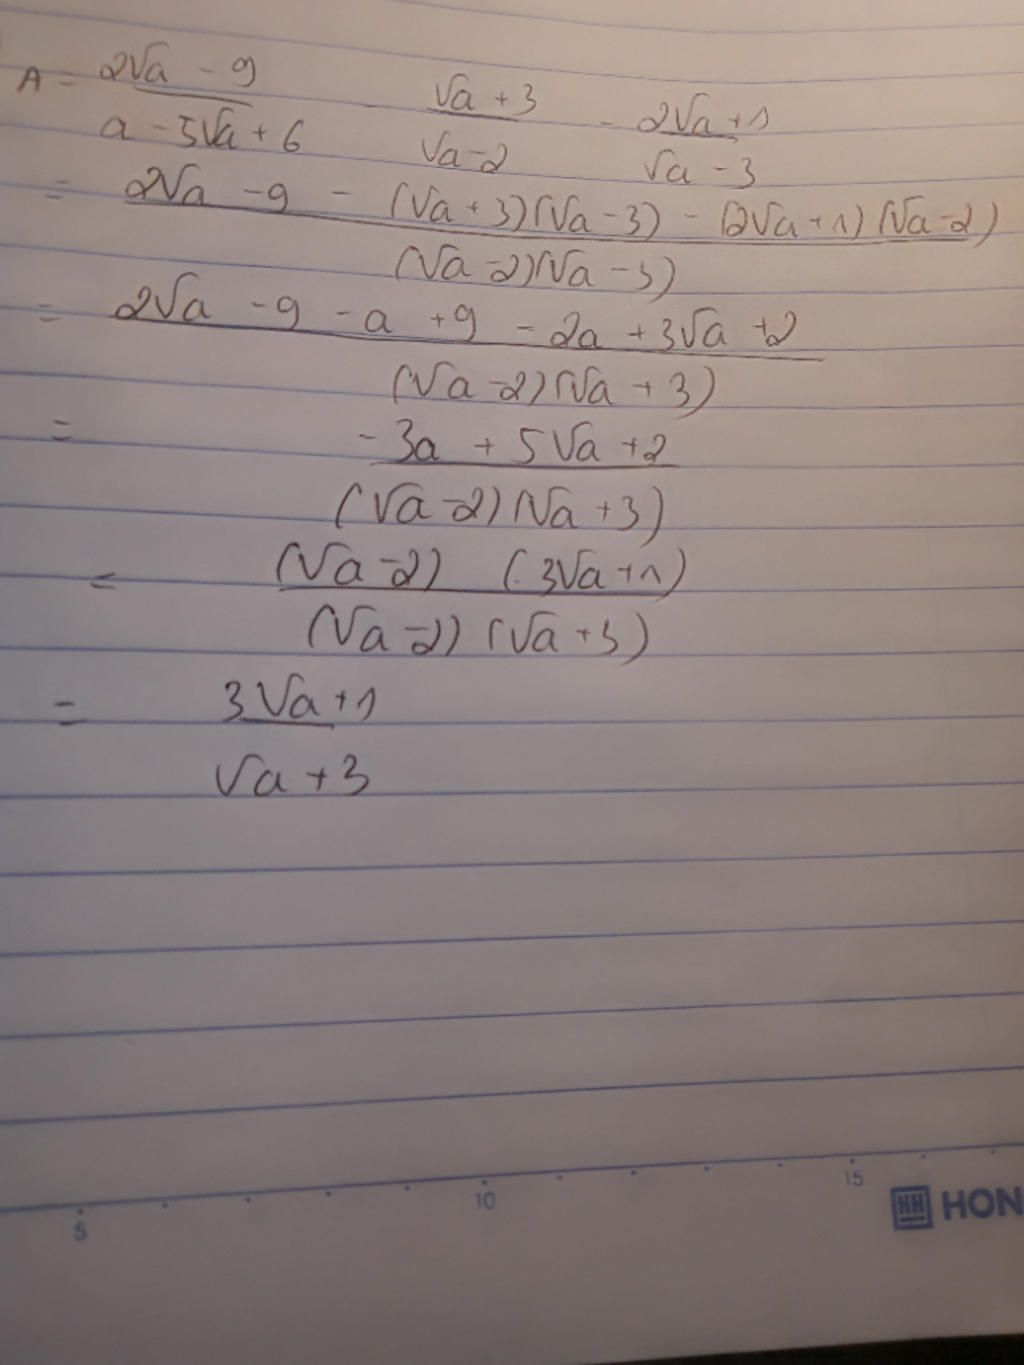 A = (2√a - 9)/(a - 5√a + 6) - (√a + 3)/(√a - 2) - (2√a + 1)/(√a - 3)
= (2√a - 9 - (√a + 3)(√a - 3) - (2√a + 1)(√a - 2))/((√a - 2)(√a - 3))
= (2√a - 9 - a + 9 - 2a + 3√a + 2)/((√a - 2)(√a + 3))
= (-3a + 5√a + 2)/((√a - 2)(√a + 3))
= ((√a - 2) (3√a + 1))/((√a - 2)(√a + 3))
= (3√a + 1)/(√a + 3)
5 10 15
HH HON